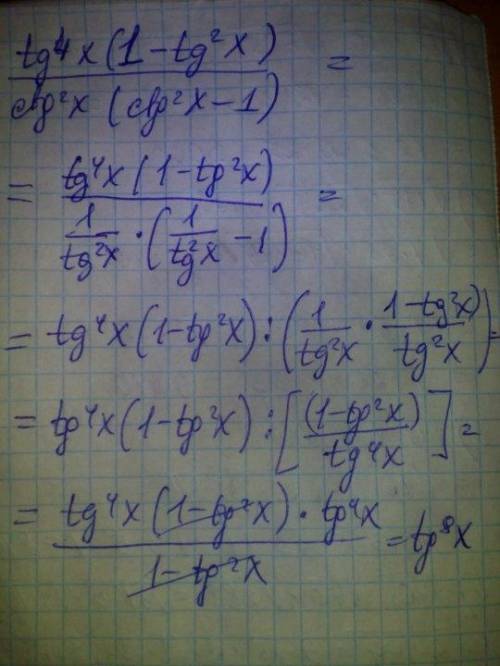 tg⁴x(1-tg²x) =
ctg²x (ctg²x-1)
= tg⁴x(1-tg²x) =
1/tg²x · (1/tg²x -1)
= tg⁴x(1-tg²x):(1/tg²x · 1-tg²x/tg²x)=
= tg⁴x(1-tg²x):[(1-tg²x)/tg⁴x]=
= tg⁴x(1-tg²x)·tg⁴x = tg⁸x
1-tg²x